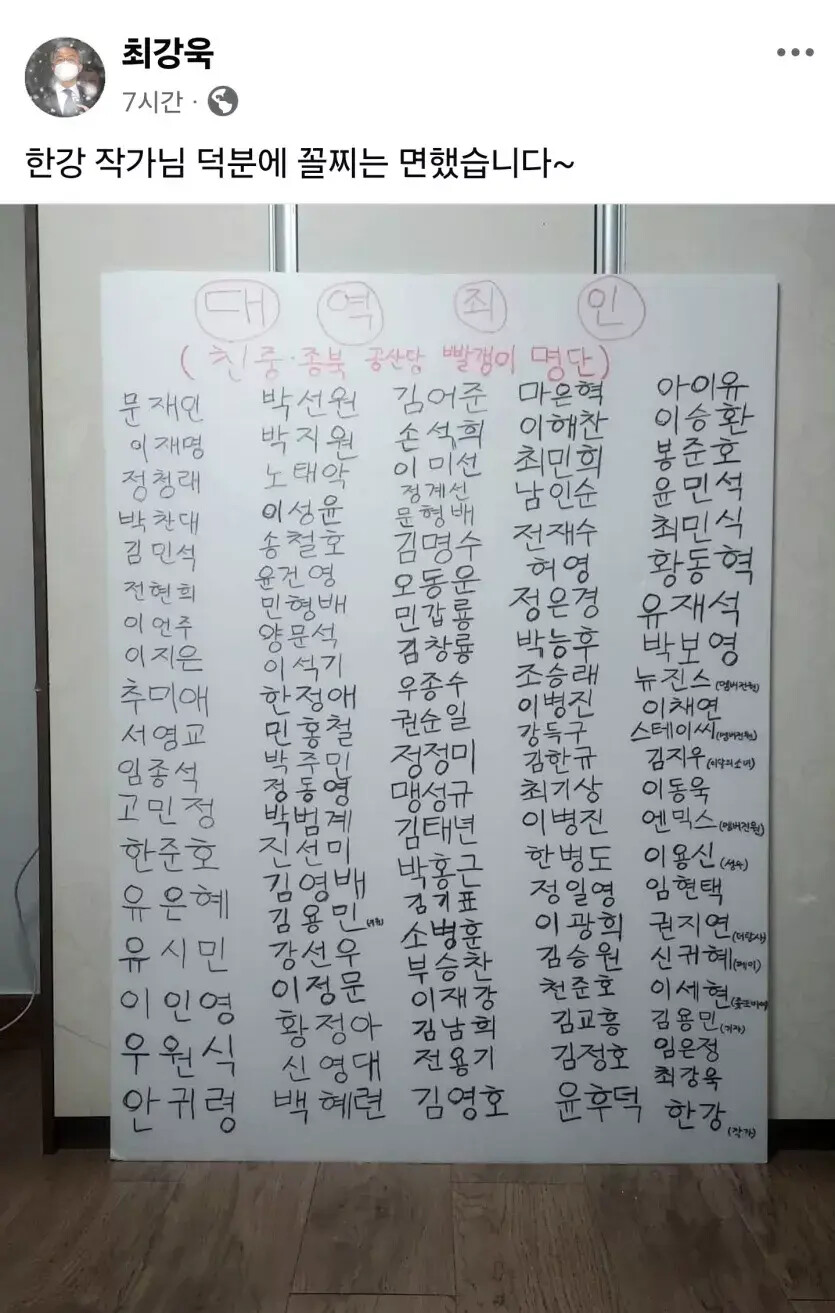 최강욱
7시간 ·
한강 작가님 덕분에 꼴찌는 면했습니다~
대 역 죄 인
( 친중·종북 공산당 빨갱이 명단)
문재인
이재명
정청래
박찬대
김민석
전현희
이언주
이지은
추미애
서영교
임종석
고민정
한준호
유은혜
유시민
이인영
우원식
안귀령
박선원
박지원
노태악
이성윤
송철호
윤건영
민형배
양문석
이석기
한정애
민홍철
박주민
정동영
박범계
진선미
김영배
김용민
강선우
이정문
황정아
신영대
백혜련
김어준
손석희
이미선
정계선
문형배
김명수
오동운
민갑룡
김창룡
우종수
권순일
정정미
맹성규
김태년
박홍근
김기표
소병훈
부승찬
이재강
김남희
전용기
김영호
마은혁
이해찬
최민희
남인순
전재수
허영
정은경
박능후
조승래
이병진
강득구
김한규
최기상
이병진
한병도
정일영
이광희
김승원
천준호
김교흥
김정호
윤후덕
아이유
이승환
봉준호
윤민석
최민식
황동혁
유재석
박보영
뉴진스(멤버전원)
이채연
스테이씨(멤버전원)
김지우(이달의소녀)
이동욱
엔믹스(멤버전원)
이용신(성우)
임현택
권지연
신귀혜
이세현
김용민(기자)
임은정
최강욱
한강(작가)